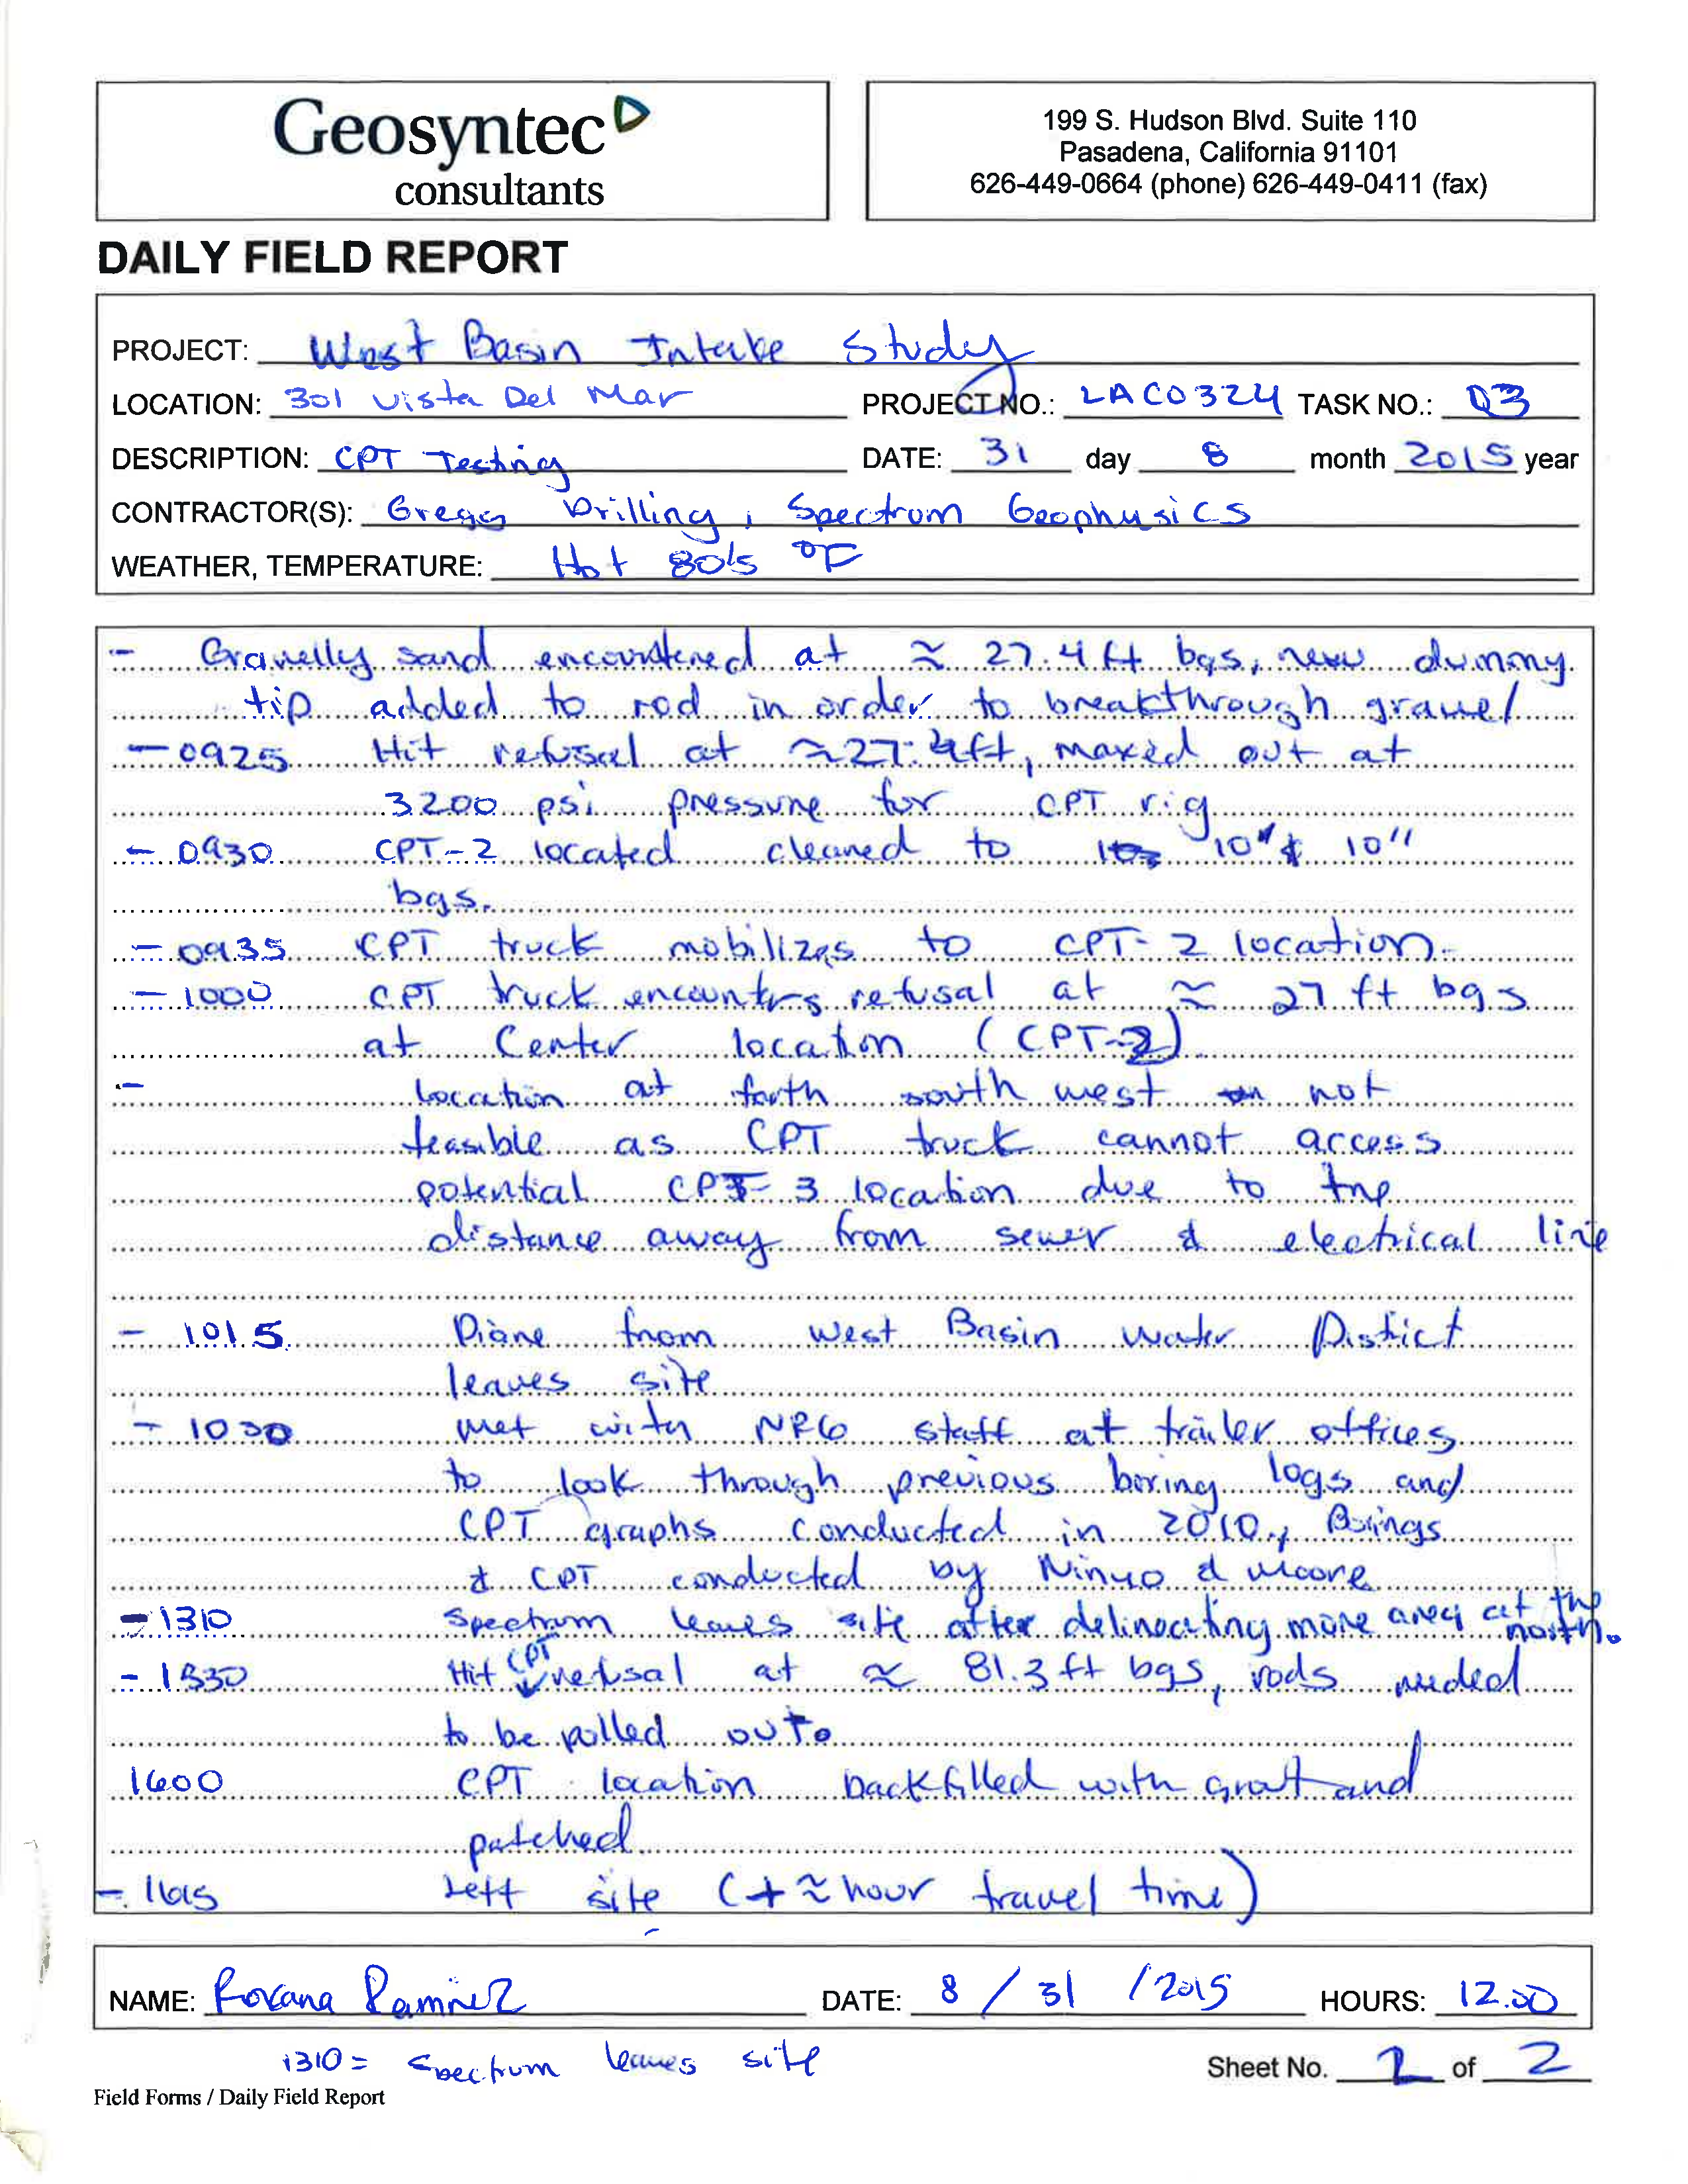 Geosyntec
consultants
199 S. Hudson Blvd. Suite 110
Pasadena, California 91101
626-449-0664 (phone) 626-449-0411 (fax)
DAILY FIELD REPORT
PROJECT: West Basin Intake Study
LOCATION: 301 Vista Del Mar PROJECT NO.: LAC0324 TASK NO.: 03
DESCRIPTION: CPT Testing DATE: 31 day 8 month 2015 year
CONTRACTOR(S): Gregg Drilling, Spectrum Geophysics
WEATHER, TEMPERATURE: Hot 80's °F
- Gravelly sand encountered at ≈ 27.4 ft bgs, new dummy
tip added to rod in order to breakthrough gravel
- 0925 Hit refusal at ≈27.4ft, maxed out at
3200 psi pressure for CPT rig
- 0930 CPT-2 located cleared to 10' & 10"
bgs.
- 0935 CPT truck mobilizes to CPT-2 location.
- 1000 CPT truck encounters refusal at ≈ 27 ft bgs
at Center location (CPT-2)
- Location at forth south west not
feasible as CPT truck cannot access
potential CPT-3 location due to the
distance away from sewer & electrical line
- 1015 Diane from West Basin Water District
leaves site
- 1030 met with NRG staff at trailer offices
to look through previous boring logs and
CPT graphs conducted in 2010, Borings
& CPT conducted by Ninyo & Moore
- 1310 Spectrum leaves site after delineating more area at the north.
- 1330 Hit CPT refusal at ≈ 81.3 ft bgs, rods needed
to be pulled out.
1600 CPT location backfilled with grout and
patched
- 1615 Left site (+ ≈ hour travel time)
NAME: Roxana Ramirez DATE: 8 / 31 / 2015 HOURS: 12.00
1310 = Spectrum leaves site
Sheet No. 2 of 2
Field Forms / Daily Field Report